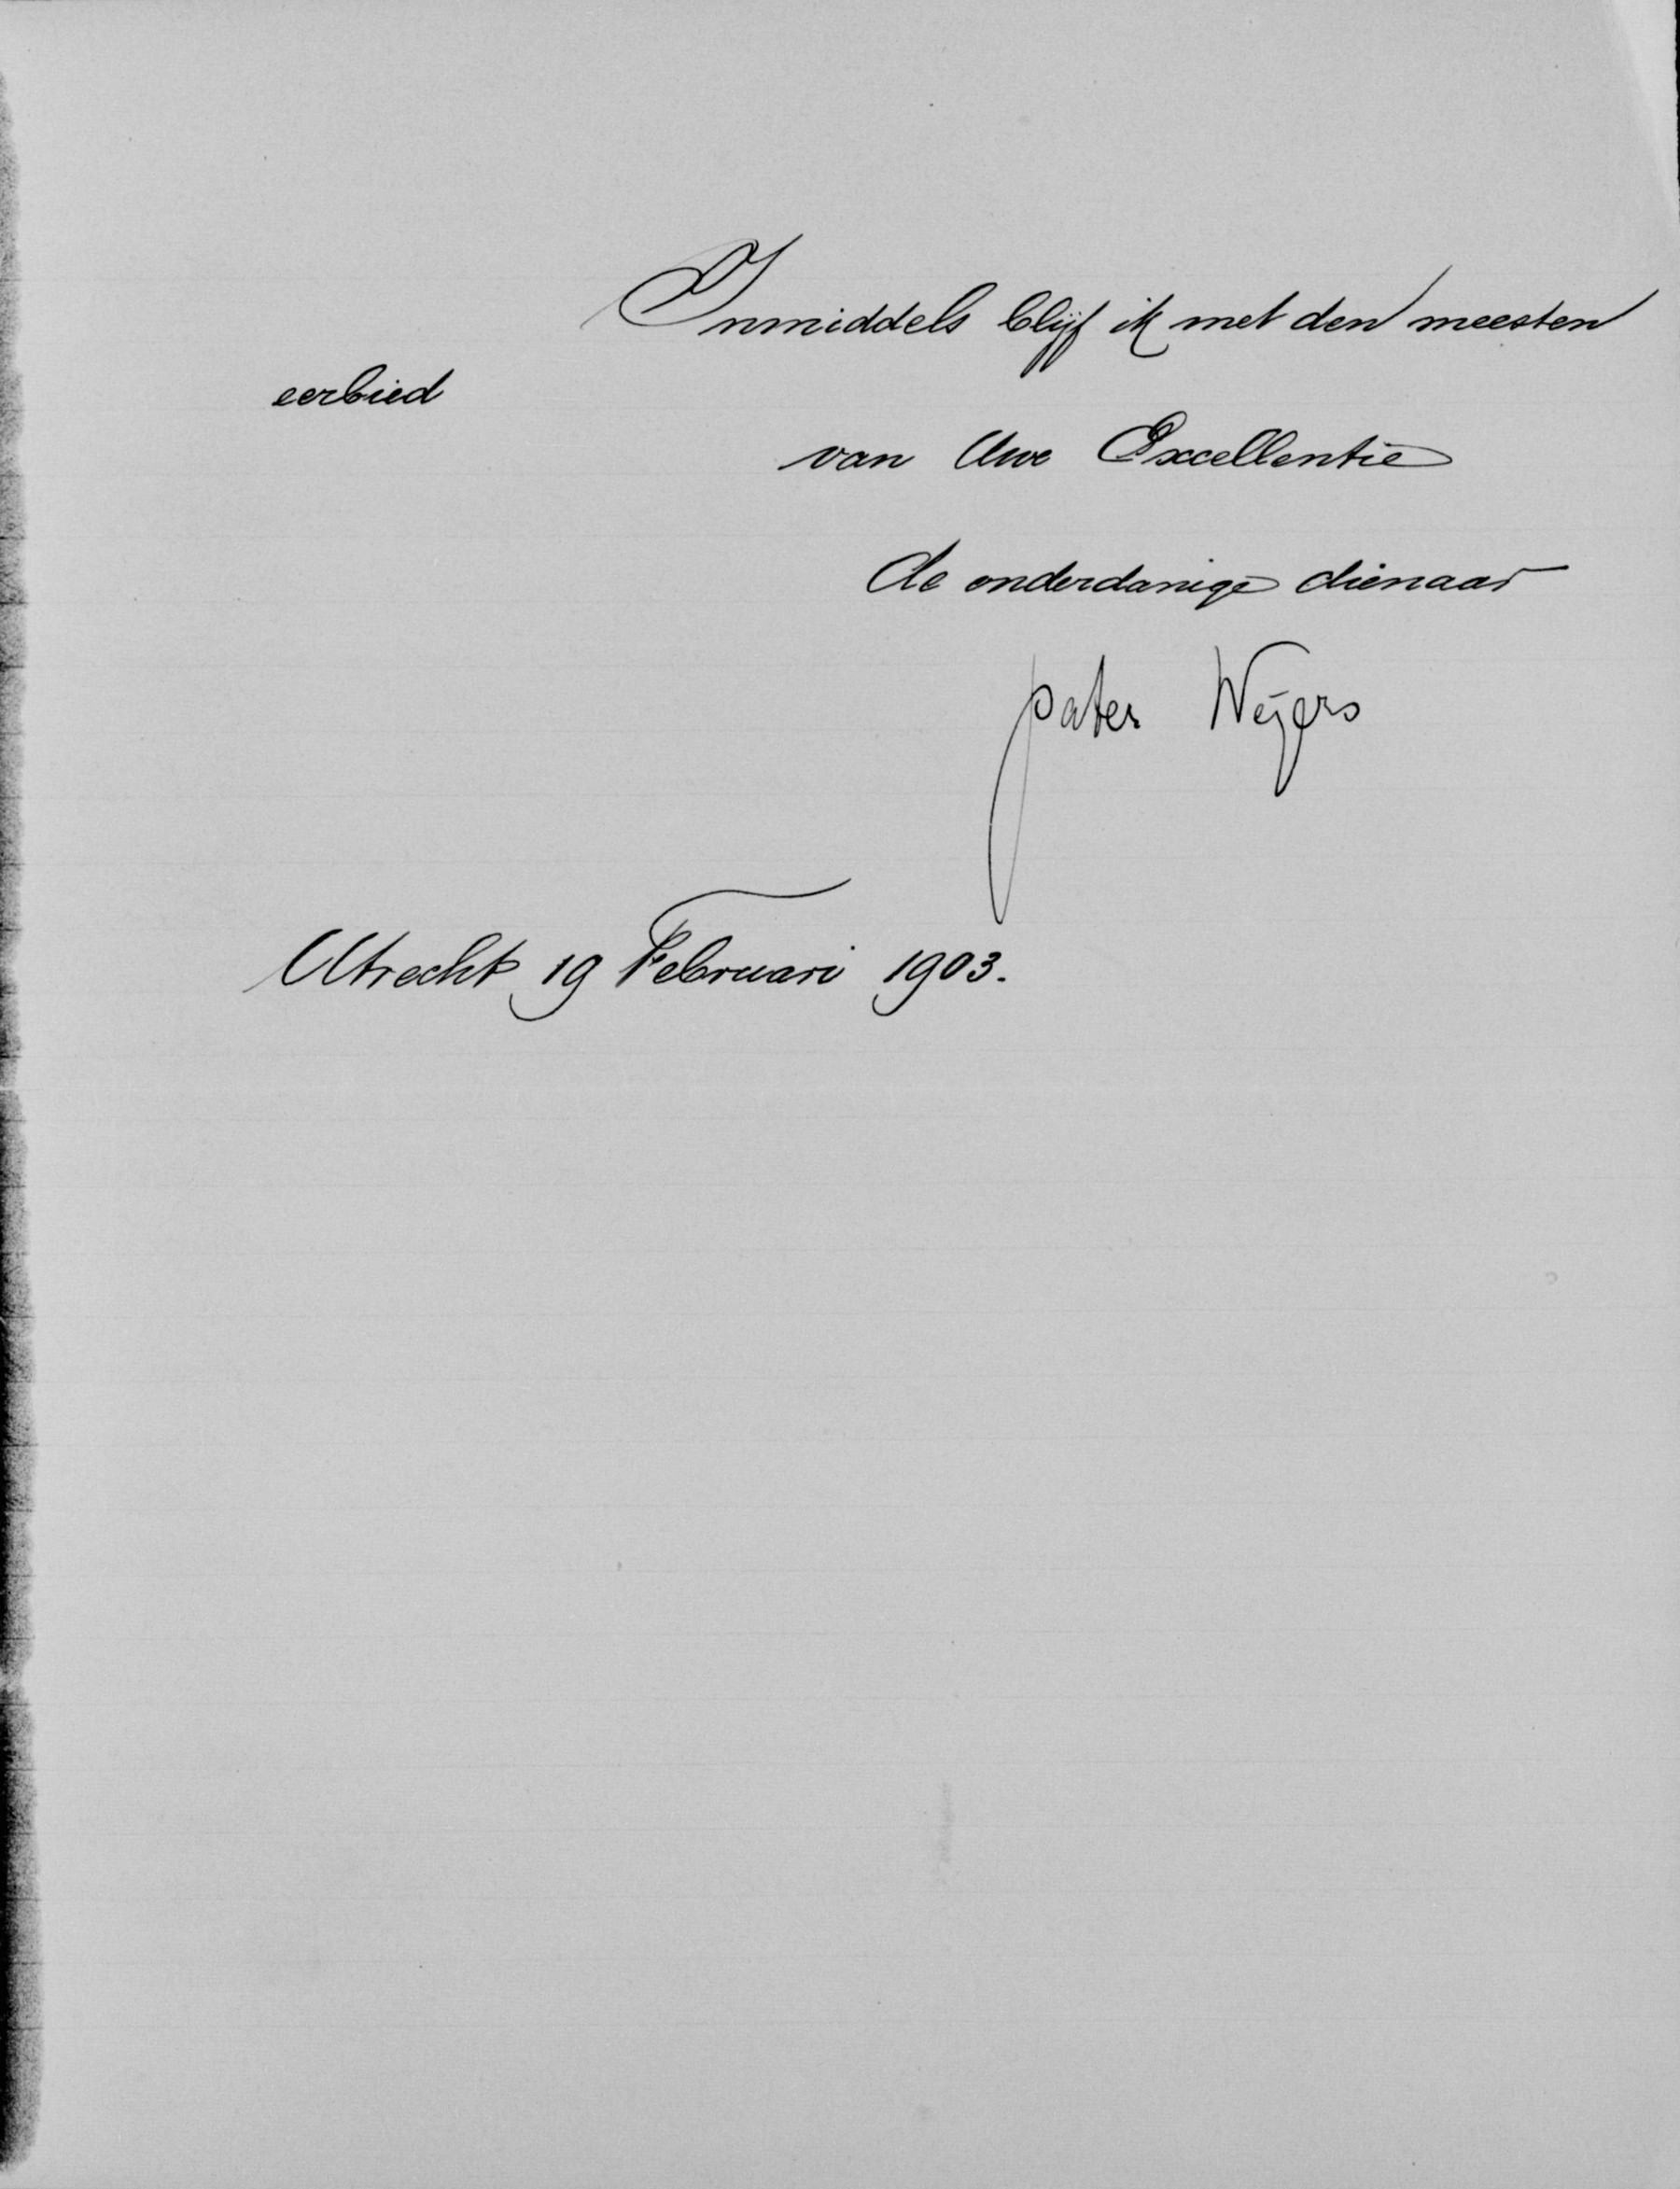 Inmiddels blijf ik met den meesten
eerbied
van Uwe Excellentie
de onderdanige dienaar
pater Weijers
Utrecht 19 Februari 1903.